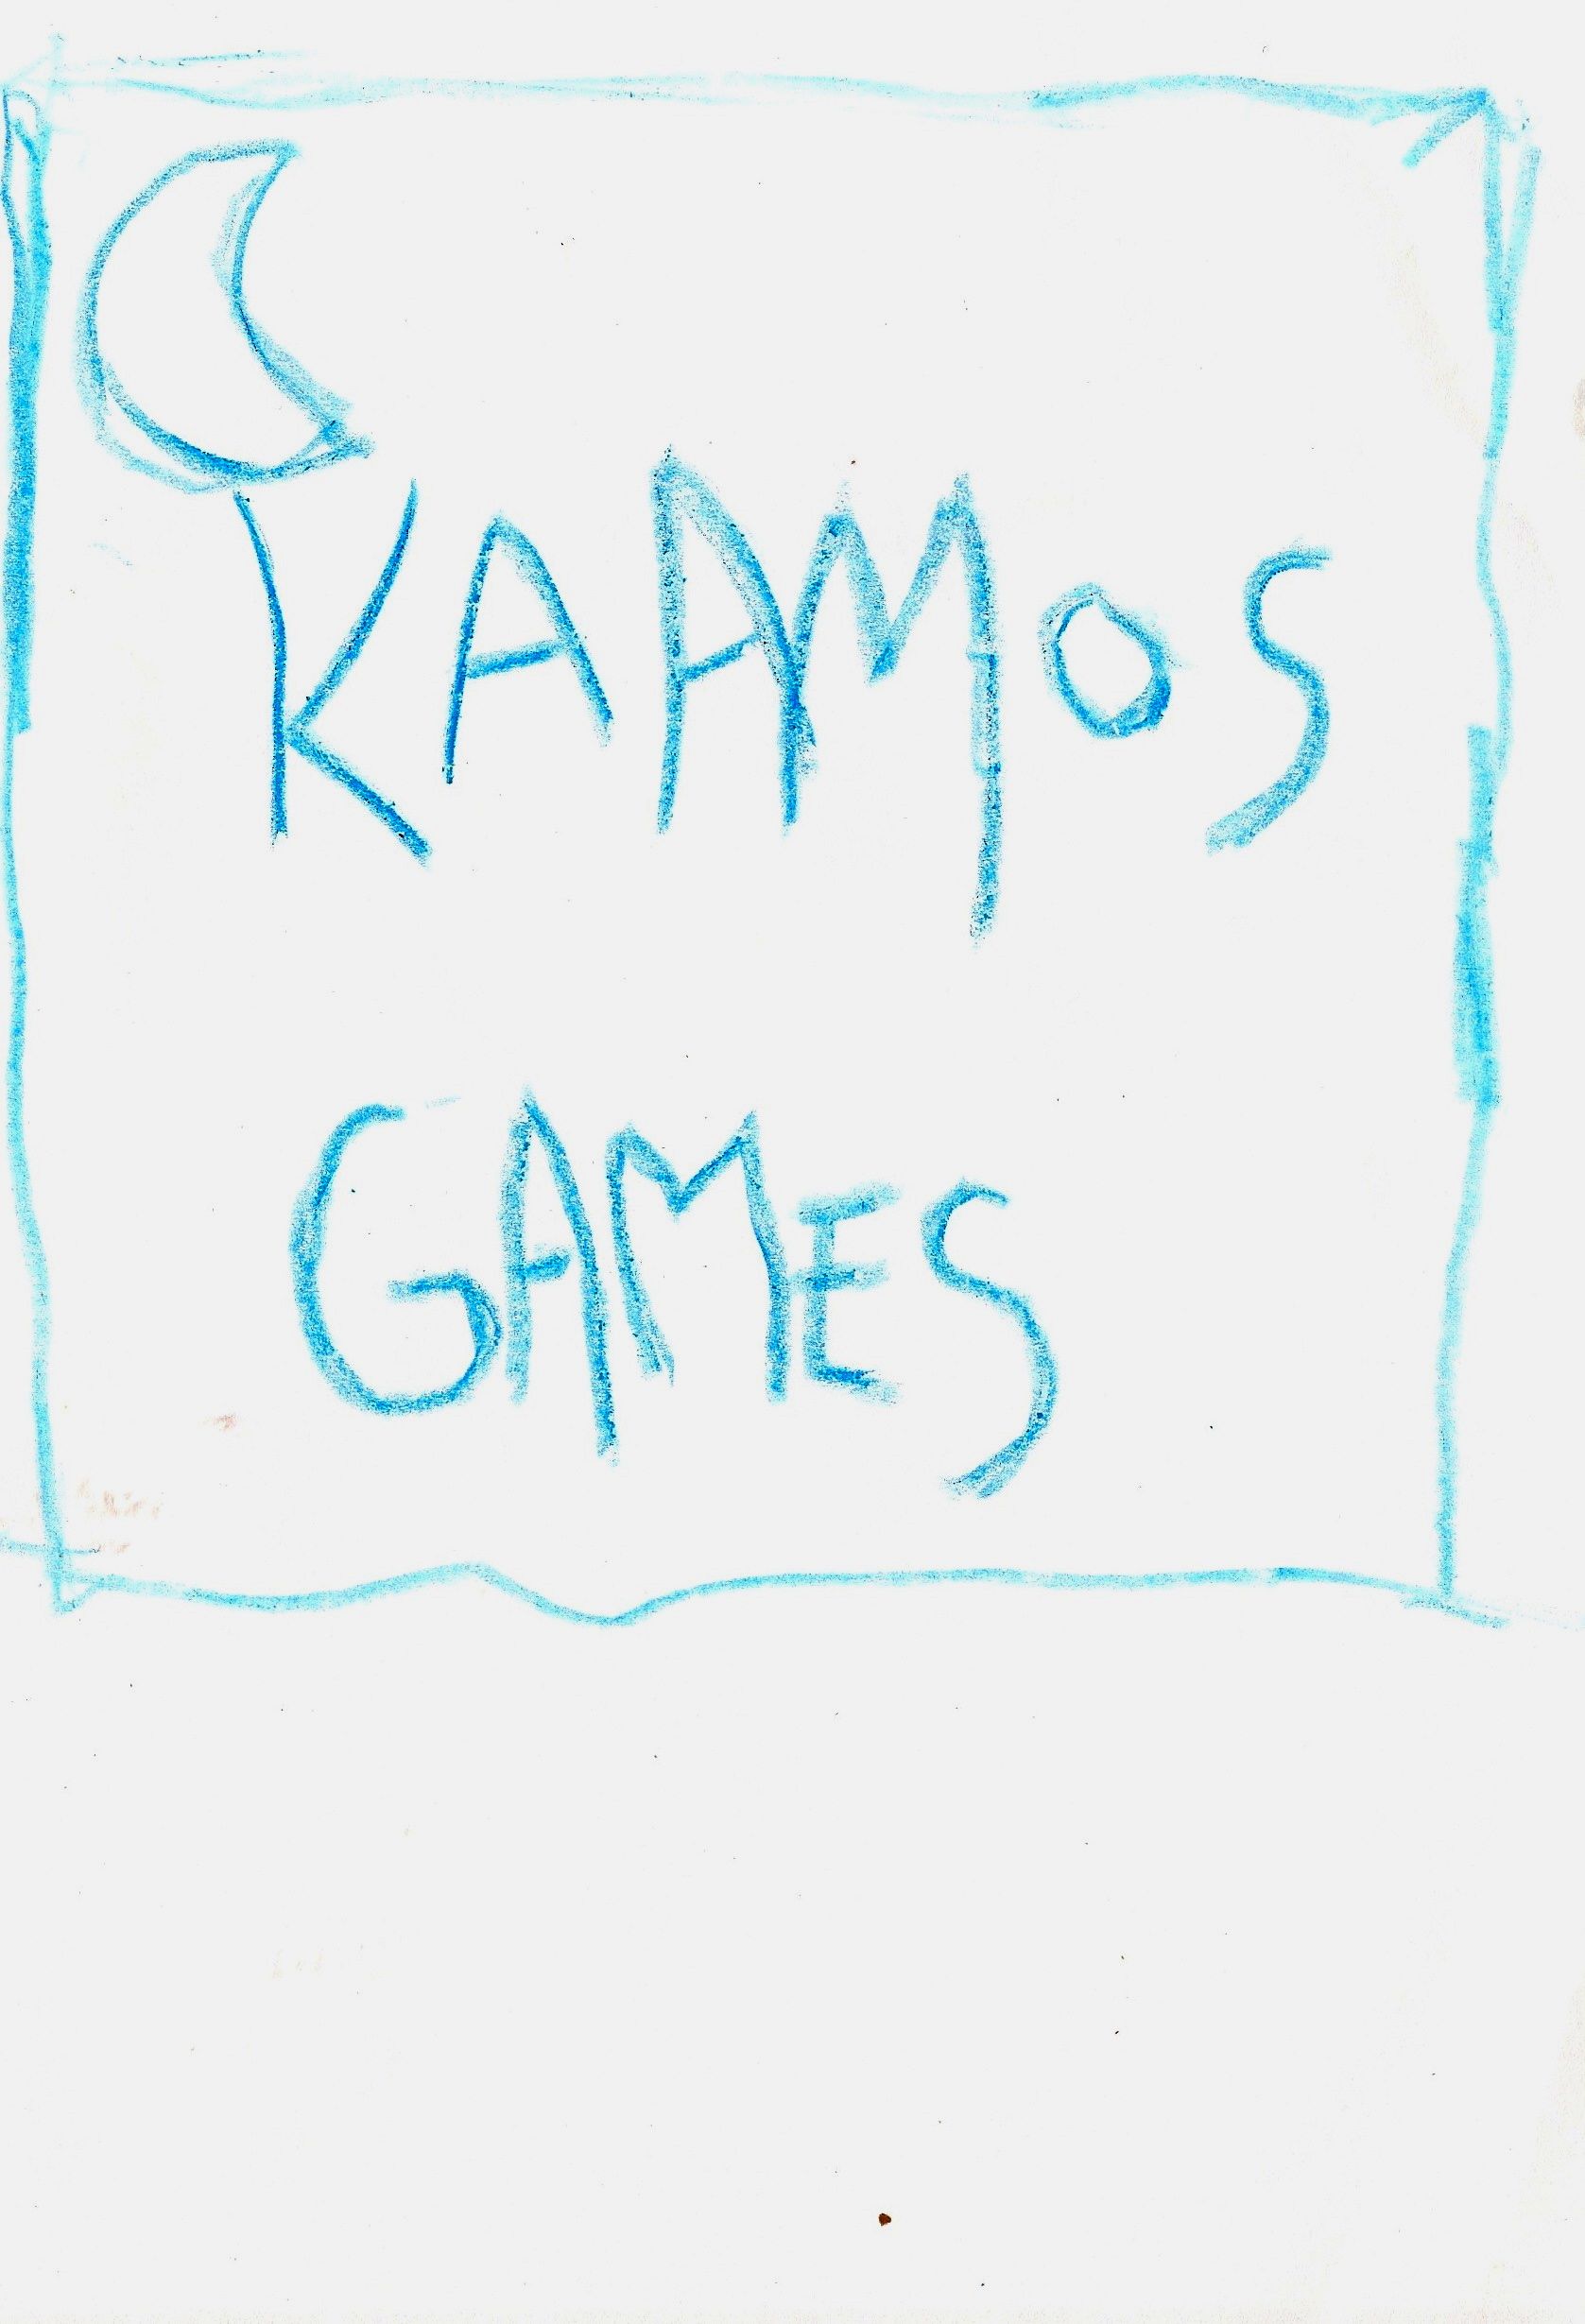 KAAMOS
GAMES